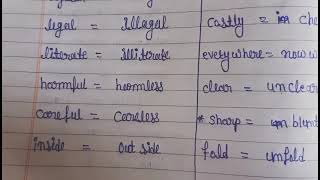 legal = illagal
literate = illiterate
harmful = homless
careful = careless
inside = out side
castly = in che
everywhere = now w
clear = unclear
* sharp = blunt
fold = unfold